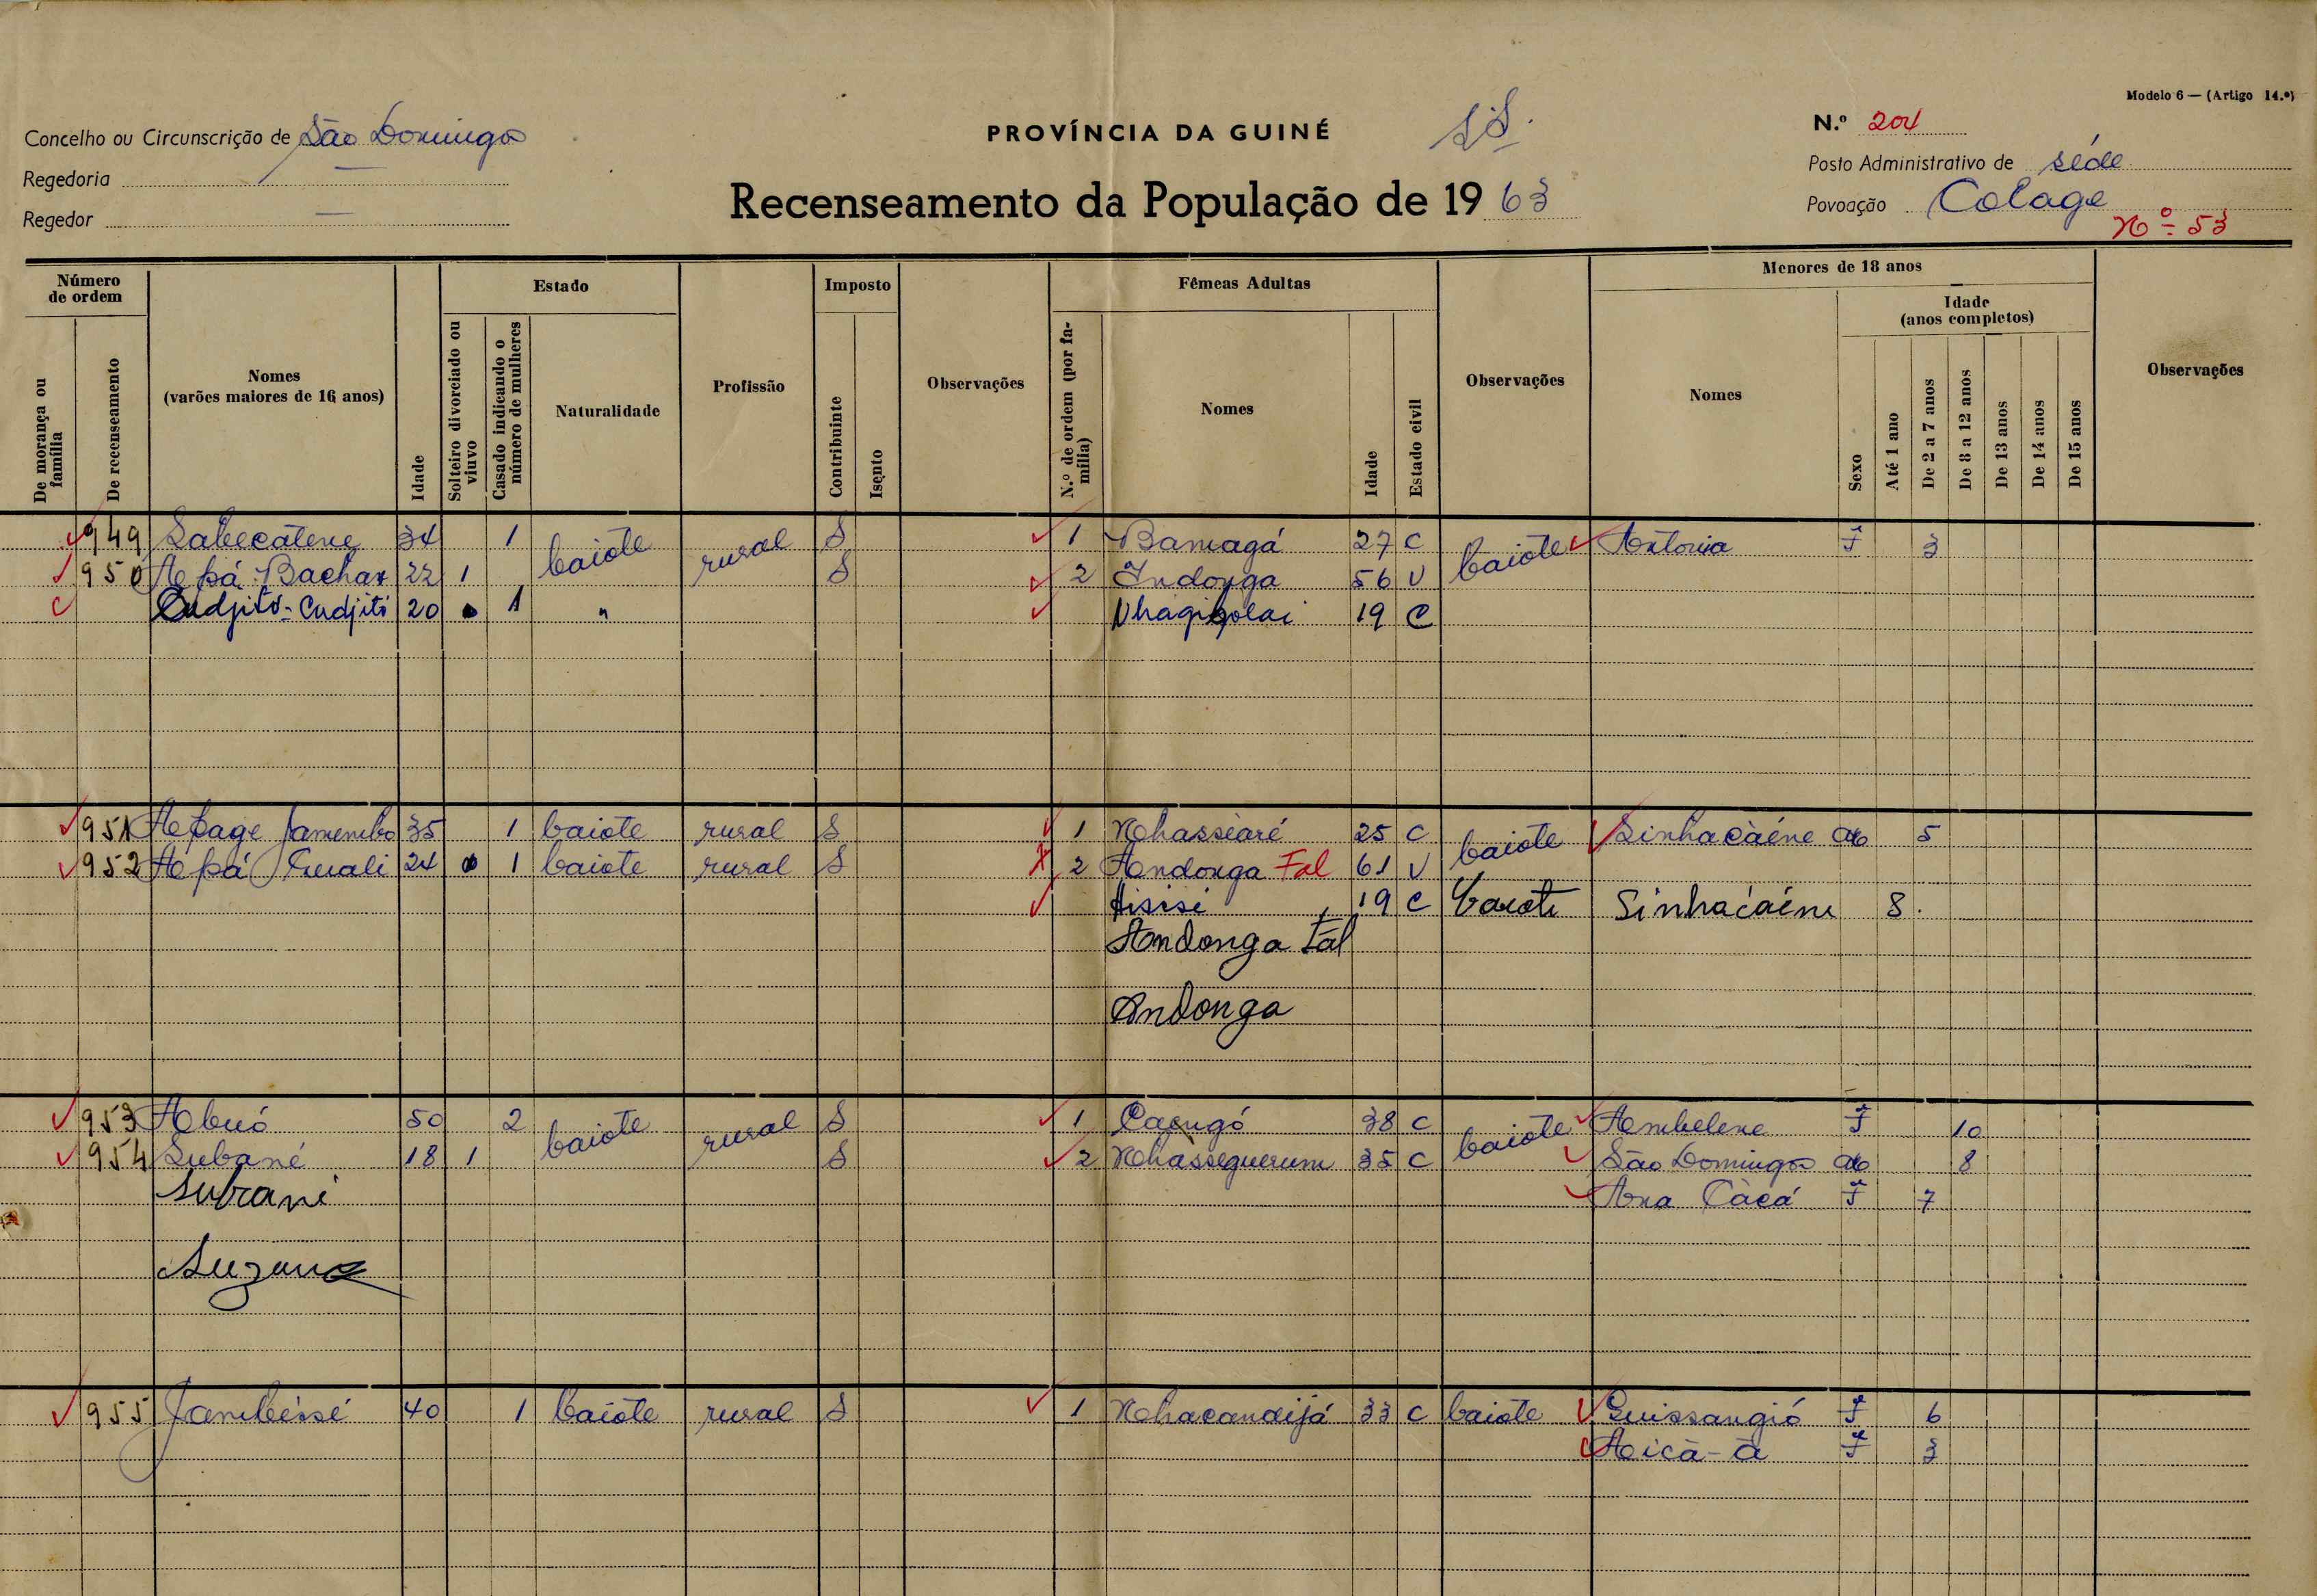 Modelo 6 — (Artigo 14.º)
Concelho ou Circunscrição de São Domingos
PROVÍNCIA DA GUINÉ
N.º 204
Regedoria —
Posto Administrativo de séde
Regedor —
Recenseamento da População de 1963
Povoação Colage
Nº 53
Número de ordem
Nomes (varões maiores de 16 anos)
Estado
Profissão
Imposto
Observações
Fêmeas Adultas
Observações
Menores de 18 anos
Idade (anos completos)
Observações
De morança ou família
De recenseamento
Idade
Solteiro divorciado ou viuvo
Casado indicando o número de mulheres
Naturalidade
Contribuinte
Isento
N.º de ordem (por família)
Nomes
Idade
Estado civil
Nomes
Sexo
Até 1 ano
De 2 a 7 anos
De 8 a 12 anos
De 13 anos
De 14 anos
De 15 anos
949 Sabecátene 34 1 baiote rural S 1 Bamagá 27 C baiote Antonia F 3
950 Apá Bachar 22 1 S 2 Indonga 56 V
Cudjitó-Cudjitó 20 1 " 19 C
951 Apage Jamembo 35 1 baiote rural S 1 Nhasséaré 25 C baiote Sinhacàéne M 5
952 Apá 24 1 baiote rural S 2 Andonga Fal 61 V
Hisisé 19 C baiote Sinhacàéne 8.
Andonga Fal
Andonga
953 Abuó 50 2 baiote rural S 1 Caengó 38 C baiote Ambelene F 10
954 Subané 18 1 S 2 Nhasseguerum 35 C São Domingos M 8
Subrani Ana Càcá F 7
Suzana
955 Jambéssé 40 1 baiote rural S 1 Nhacandijá 33 C baiote Guissangió F 6
Aicà-à F 3